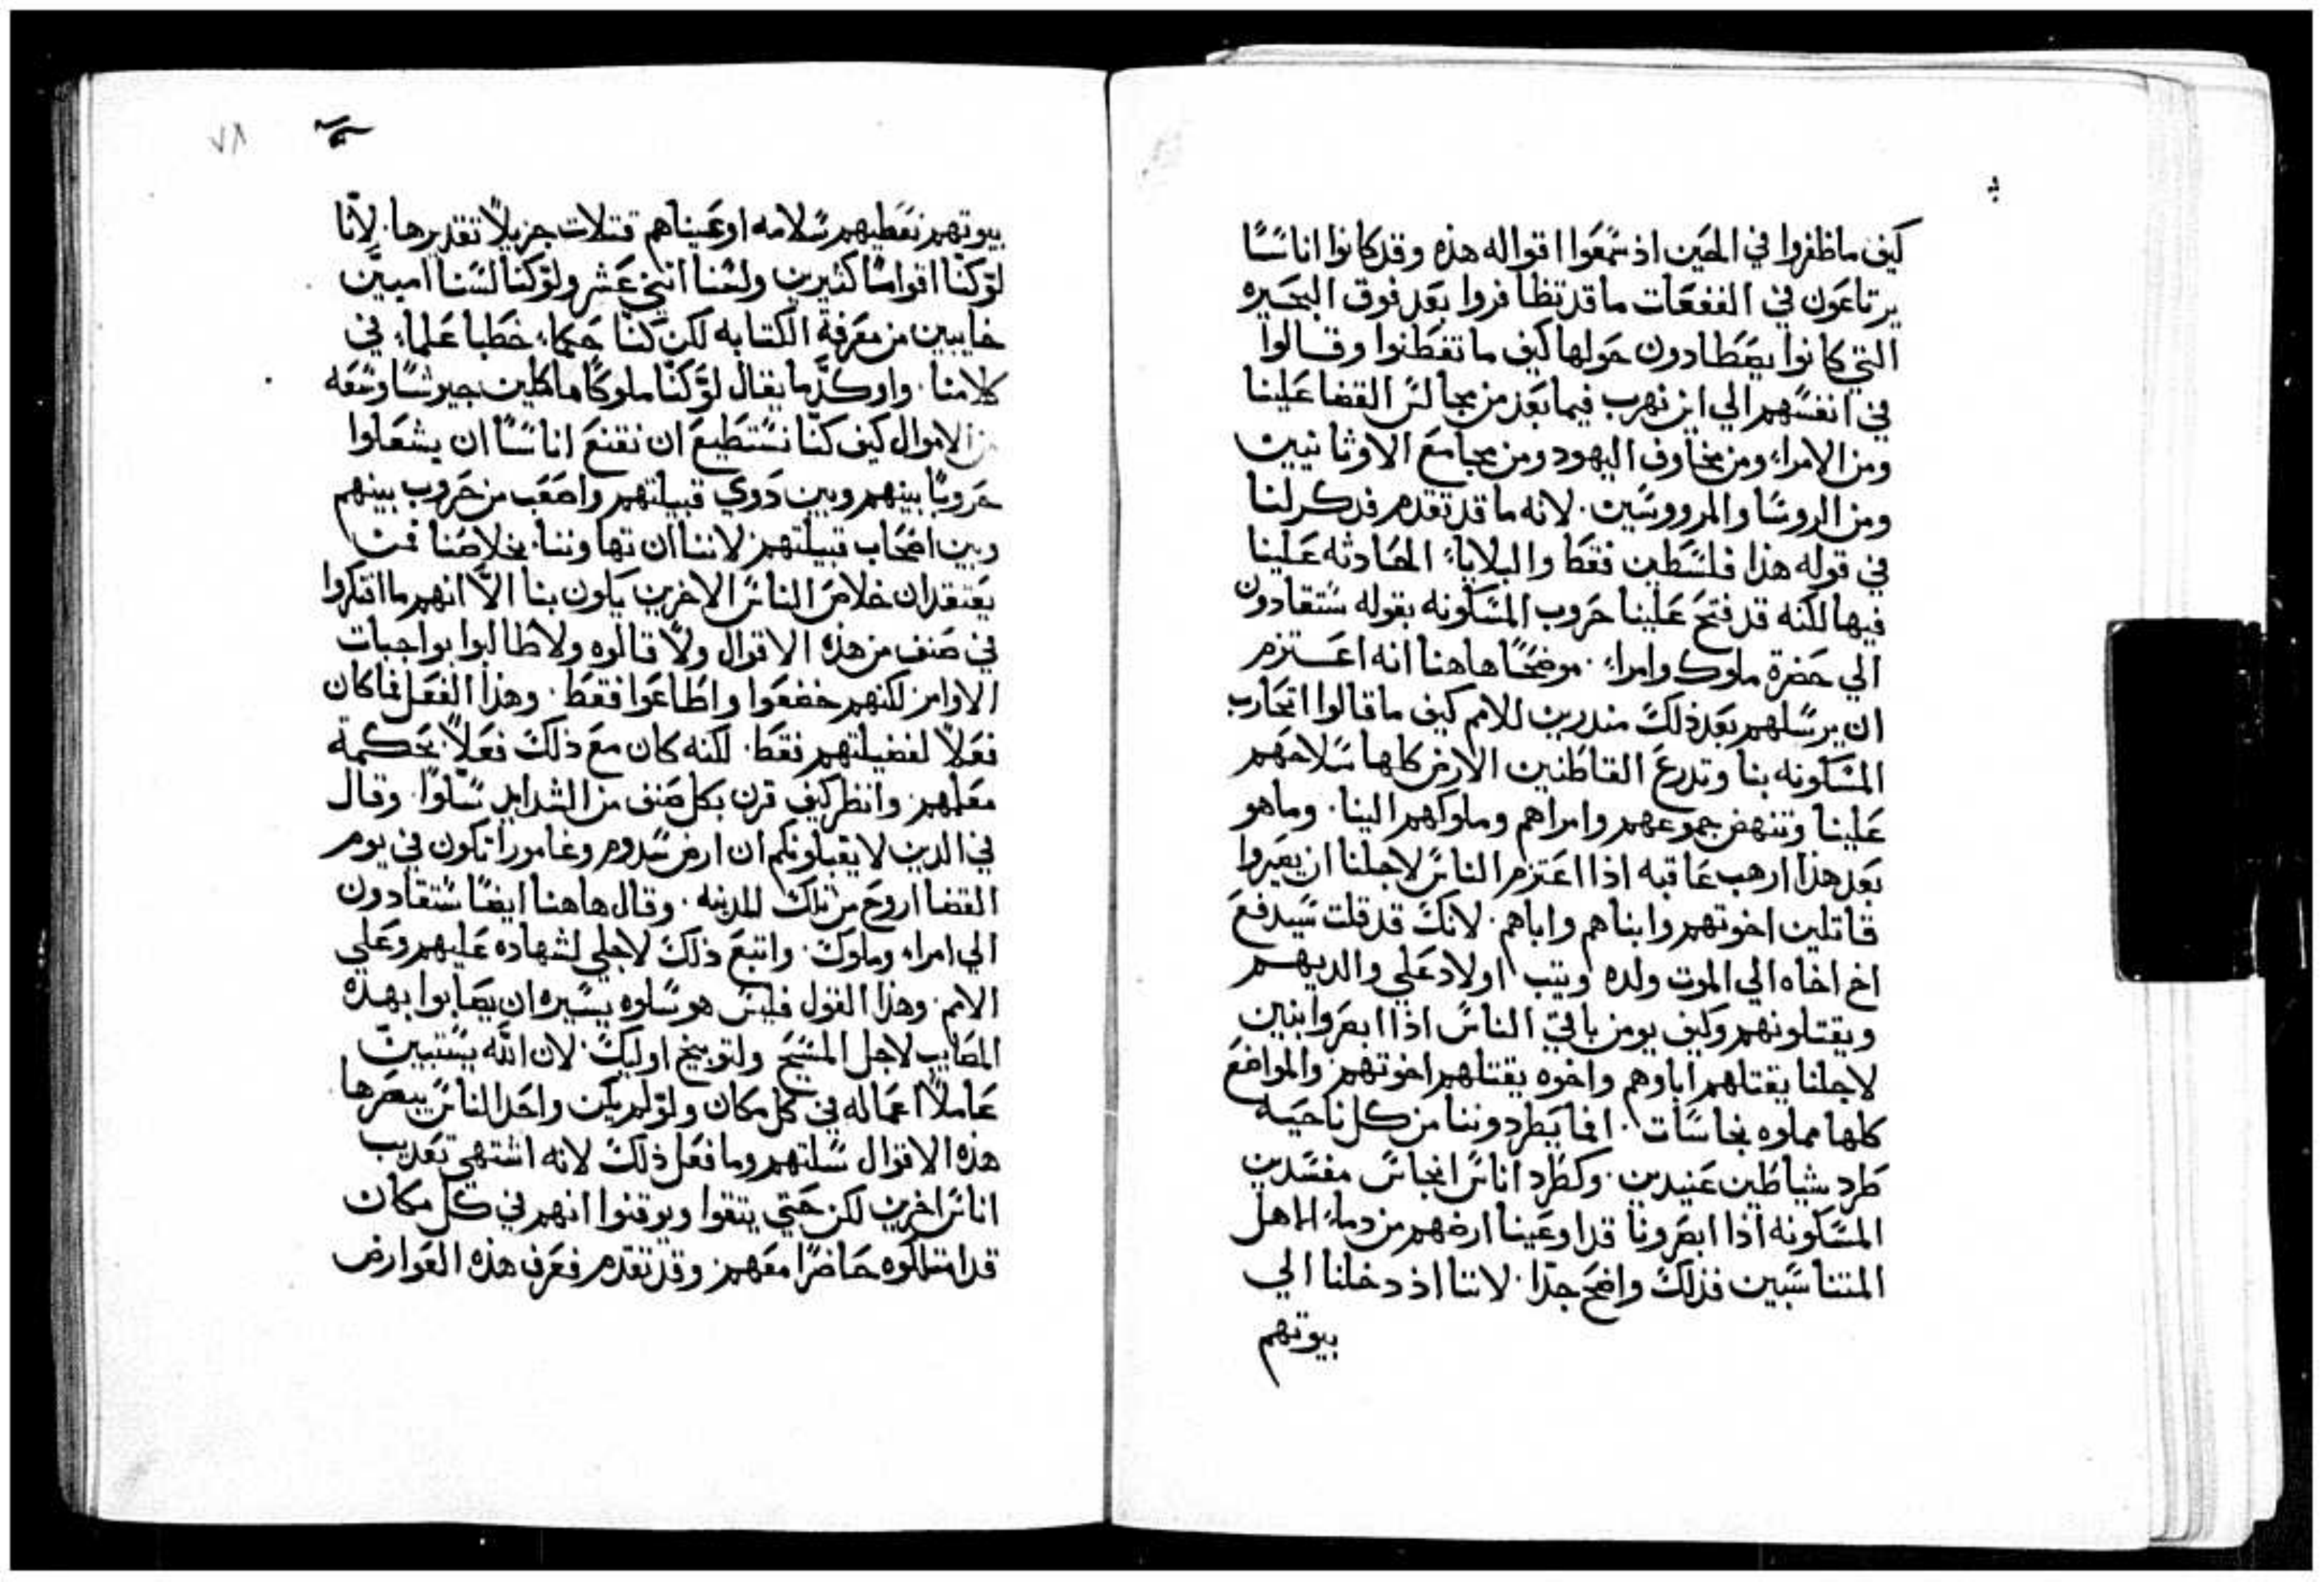 كيف ماظفروا في الحين اذ سمعوا اقواله هذه وقد كانوا اناسًا
يرتاعون في الفقعات ماقد تظافروا بعد فوق البحيره
التي كانوا يصطادون حولها كيف ما تفطنوا وقالوا
في انفسهم الي اين نهرب فيما بعد من مجالس القضا علينا
ومن الامراء ومن مخاوف اليهود ومن مجامع الاوثانيين
ومن الروسا والمرووسين. لانه ما قد تقدم فذكر لنا
في قوله هذا فلسطين فقط والبلاياء الحادثه علينا
فيها لكنه قد فتح علينا حروب المسكونه بقوله ستقادون
الي حضرة ملوك وامراء. موضحًا هاهنا انه اعتزم
ان يرسلهم بعد ذلك منذرين للامم كيف ما قالوا اتحارب
المسكونه بنا وتدرع القاطنين الارض كلها سلاحهم
علينا وتنهض جموعهم وامراهم وملوكهم الينا. وماهو
بعد هذا ارهب عاقبه اذا اعتزم الناس لاجلنا ان يصيروا
قاتلين اخوتهم وابناهم واباهم. لانك قد قلت سيدفع
اخ اخاه الي الموت ولده ويثب اولاد علي والديهم
ويقتلونهم وكيف يومن باقي الناس اذا ابصروا بنين
لاجلنا يقتلهم اباوهم واخوه يقتلهم اخوتهم والمواضع
كلها مملوه نجاسات. افما يطردوننا من كل ناحيه
طرد شياطين عنيدين. وكطرد اناس انجاس مفسدين
المسكونه اذا ابصرونا قد اوعبنا ارضهم من دماء الاهل
المتناسبين فذلك واضح جدًا. لاننا اذ دخلنا الي
بيوتهم
٧٨
بيوتهم نعطيهم سلامه اوعبناهم قتلات جزيلاً تقديرها. لانّا
لو كنا اقوامًا كثيرين ولسنا اثني عشر ولو كنا لسنا امييّن
خايبين من معرفة الكتابه لكن كنا حكماء خطبا علماء في
كلامنا. واوكد ما يقال لو كنّا ملوكًا مالكين جيوشًا وسعه
من الاموال كيف كنا نستطيع ان نقنع اناسًا ان يشعلوا
حروبًا بينهم وبين ذوي قبيلتهم واصعب من حروب بينهم
وبين اصحاب قبيلتهم لاننا ان تهاوننا بخلاصنا فمن
يعتقد ان خلاص الناس الاخرين يكون بنا الّا انهم ما افتكروا
في صنف من هذه الاقوال ولا قالوه ولا طالبوا بواجبات
الاوامر لكنهم خضعوا واطاعوا فقط. وهذا الفعل فما كان
فعلاً لفضيلتهم فقط. لكنه كان مع ذلك فعلاً بحكمة
معلمهم وانظر كيف قرن بكل صنف من الشدايد سلوًا. وقال
في الذين لا يقبلونكم ان ارض سدوم وغامورا تكون في يوم
القضا اروح من تلك المدينه. وقال هاهنا ايضًا ستقادون
الي امراء وملوك. واتبع ذلك لاجلي لشهاده عليهم وعلي
الامم. وهذا القول فليس هو سلوه يسيره ان يصابوا بهذه
المصايب لاجل المسيح ولتوبيخ اوليك. لان الله يستبين
عاملاً اعماله في كل مكان ولو لم يكن واحد الناس يبصرها
هذه الاقوال سلتهم وما فعل ذلك لانه اشتهي تعذيب
اناس اخرين لكن حتي يثقوا ويوقنوا انهم في كل مكان
قد امتلكوه حاضرًا معهم وقد تقدم فعرف هذه العوارض